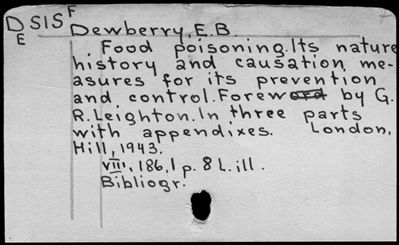 D SIS F
E
Dewberry, E.B.
Food poisoning. Its nature,
history and causation, me-
asures for its prevention
and control. Foreword by G.
R. Leighton. In three parts
with appendixes. London,
Hill, 1943.
VIII, 186, 1 p. 8 L. ill.
Bibliogr.